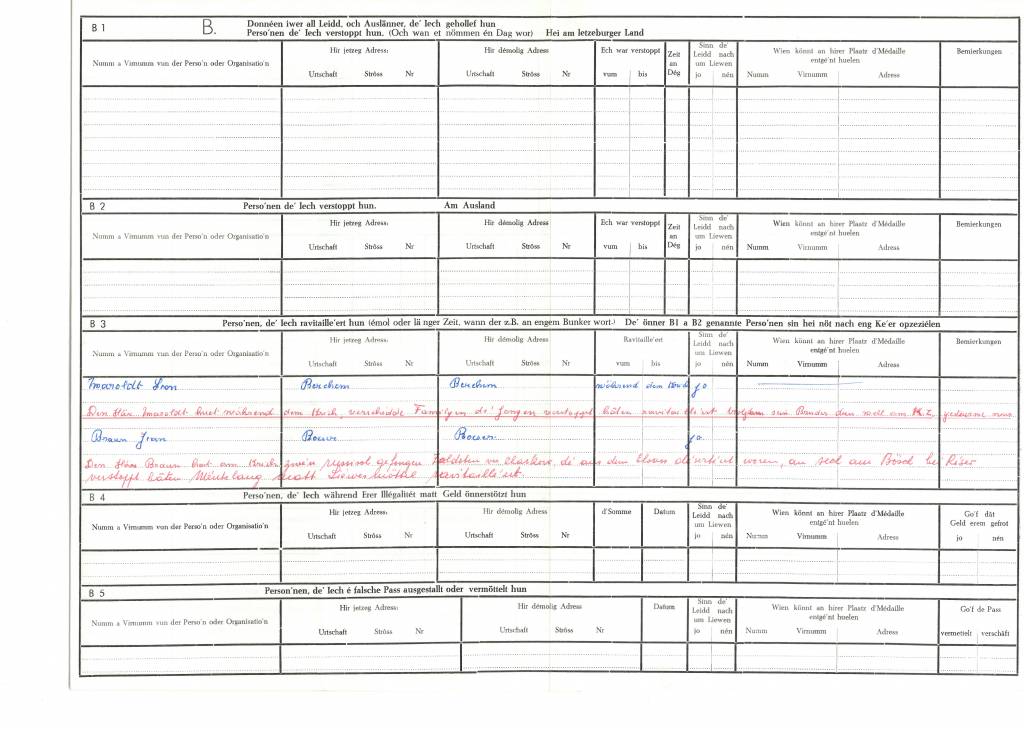 B 1 B. Donnéen iwer all Leidd, och Auslänner, de' Iech gehollef hun
Perso'nen de' Iech verstoppt hun. (Och wan et nömmen én Dag wor) Hei am letzeburger Land
Numm a Virnumm vun der Perso'n oder Organisatio'n
Hir jetzeg Adress:
Urtschaft Ströss Nr
Hir démolig Adress
Urtschaft Ströss Nr
Ech war verstoppt
vum bis
Zeit
an
Dég
Sinn de'
Leidd nach
um Liewen
jo nén
Wien könnt an hirer Plaatz d'Médaille
entgé'nt huelen
Numm Virnumm Adress
Bemierkungen
B 2 Perso'nen de' Iech verstoppt hun. Am Ausland
Numm a Virnumm vun der Perso'n oder Organisatio'n
Hir jetzeg Adress:
Urtschaft Ströss Nr
Hir démolig Adress:
Urtschaft Ströss Nr
Ech war verstoppt
vum bis
Zeit
an
Dég
Sinn de'
Leidd nach
um Liewen
jo nén
Wien könnt an hirer Plaatz d'Médaille
entgé'nt huelen
Numm Virnumm Adress
Bemierkungen
B 3 Perso'nen, de' Iech ravitaille'ert hun (émol oder länger Zeit, wann der z.B. an engem Bunker wort.) De' önner B1 a B2 genannte Perso'nen sin hei nöt nach eng Ke'er opzeziélen
Numm a Virnumm vun der Perso'n oder Organisatio'n
Hir jetzeg Adress:
Urtschaft Ströss Nr
Hir démolig Adress
Urtschaft Ströss Nr
Ravitaille'ert
vum bis
Sinn de'
Leidd nach
um Liewen
jo nén
Wien könnt an hirer Plaatz d'Médaille
entgé'nt huelen
Numm Virnumm Adress
Bemierkungen
Maroldt Berchem Berchem während dem Krich jo
Den Här Maroldt huet während dem Krich, verschidde Familjen de' Jongen verstoppt häten sein Bruder am K.Z.
Braun Jean jo
Den Här Braun hat am Krich zwe'n gefangen Zaldoten de' aus dem woren, an am Bösch bei
verstoppt häten matt
B 4 Perso'nen, de' Iech während Erer Illégalitét matt Geld önnerstötzt hun
Numm a Virnumm vun der Perso'n oder Organisatio'n
Hir jetzeg Adress:
Urtschaft Ströss Nr
Hir démolig Adress
Urtschaft Ströss Nr
d'Somme Datum
Sinn de'
Leidd nach
um Liewen
jo nén
Wien könnt an hirer Plaatz d'Médaille
entgé'nt huelen
Numm Virnumm Adress
Go'f dât
Geld erem gefrot
jo nén
B 5 Person'nen, de' Iech é falsche Pass ausgestallt oder vermöttelt hun
Numm a Virnumm vun der Perso'n oder Organisatio'n
Hir jetzeg Adress:
Urtschaft Ströss Nr
Hir démolig Adress
Urtschaft Ströss Nr
Datum
Sinn de'
Leidd nach
um Liewen
jo nén
Wien könnt an hirer Plaatz d'Médaille
entgé'nt huelen
Numm Virnumm Adress
Go'f de Pass
vermettelt verschäft